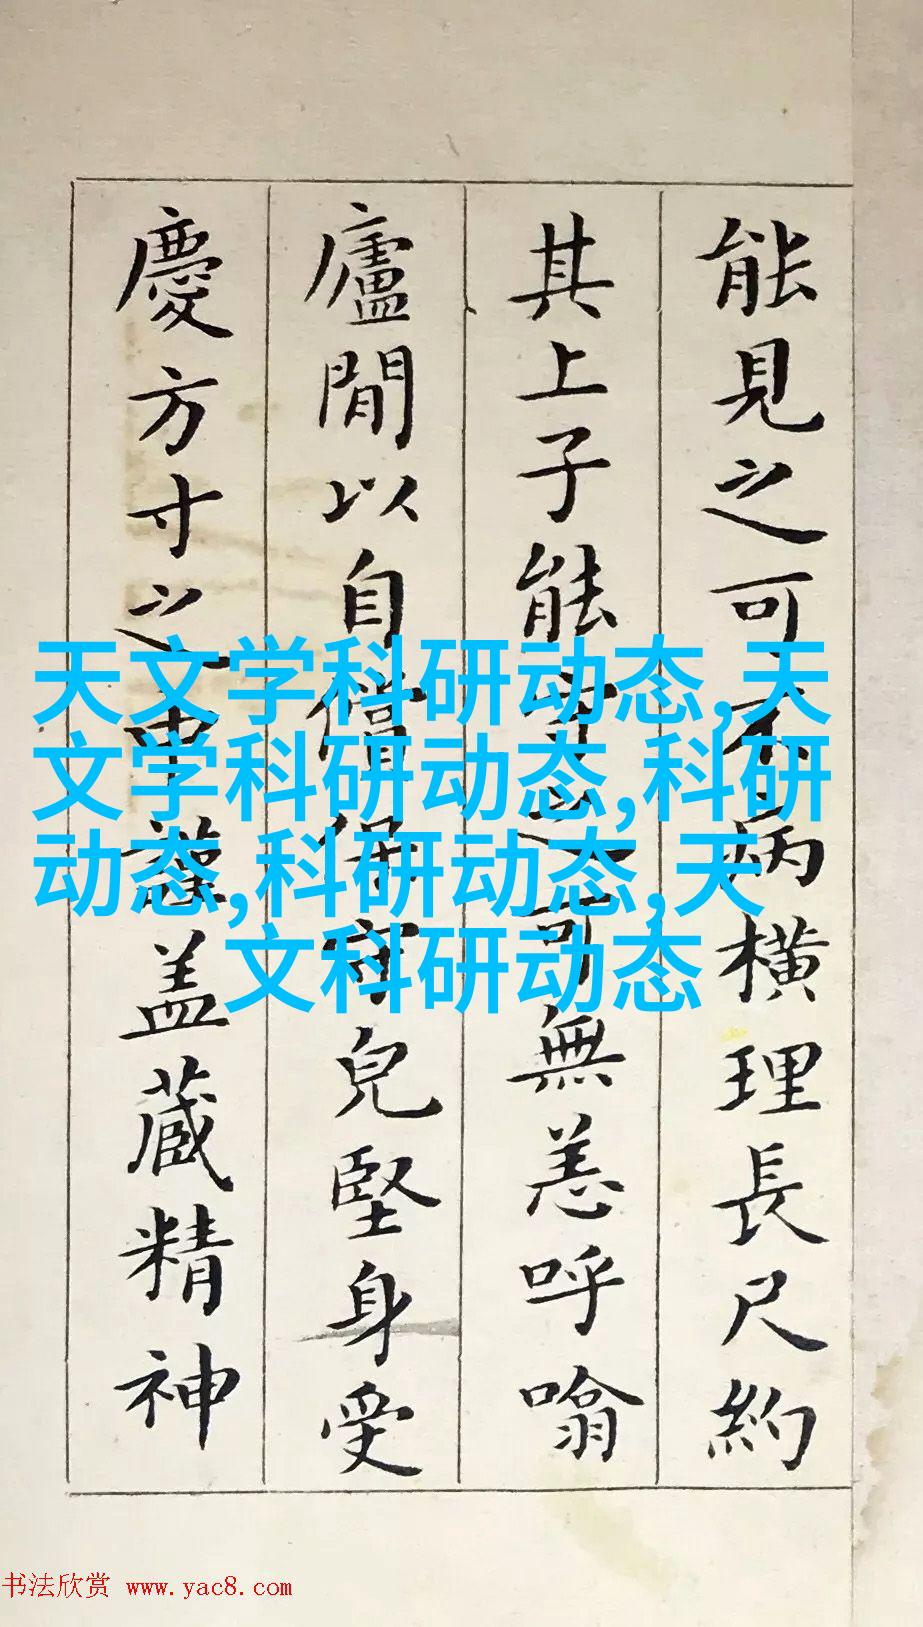 能見之可不病橫理長尺約
其上子能守之可無恙呼噏
廬閒以自償保守兒堅身受
慶方寸之中謹盖藏精神
天文学科研动态,天
文学科研动态,科研
动态,科研动态,天
文科研动态
书法欣赏 www.yac8.com